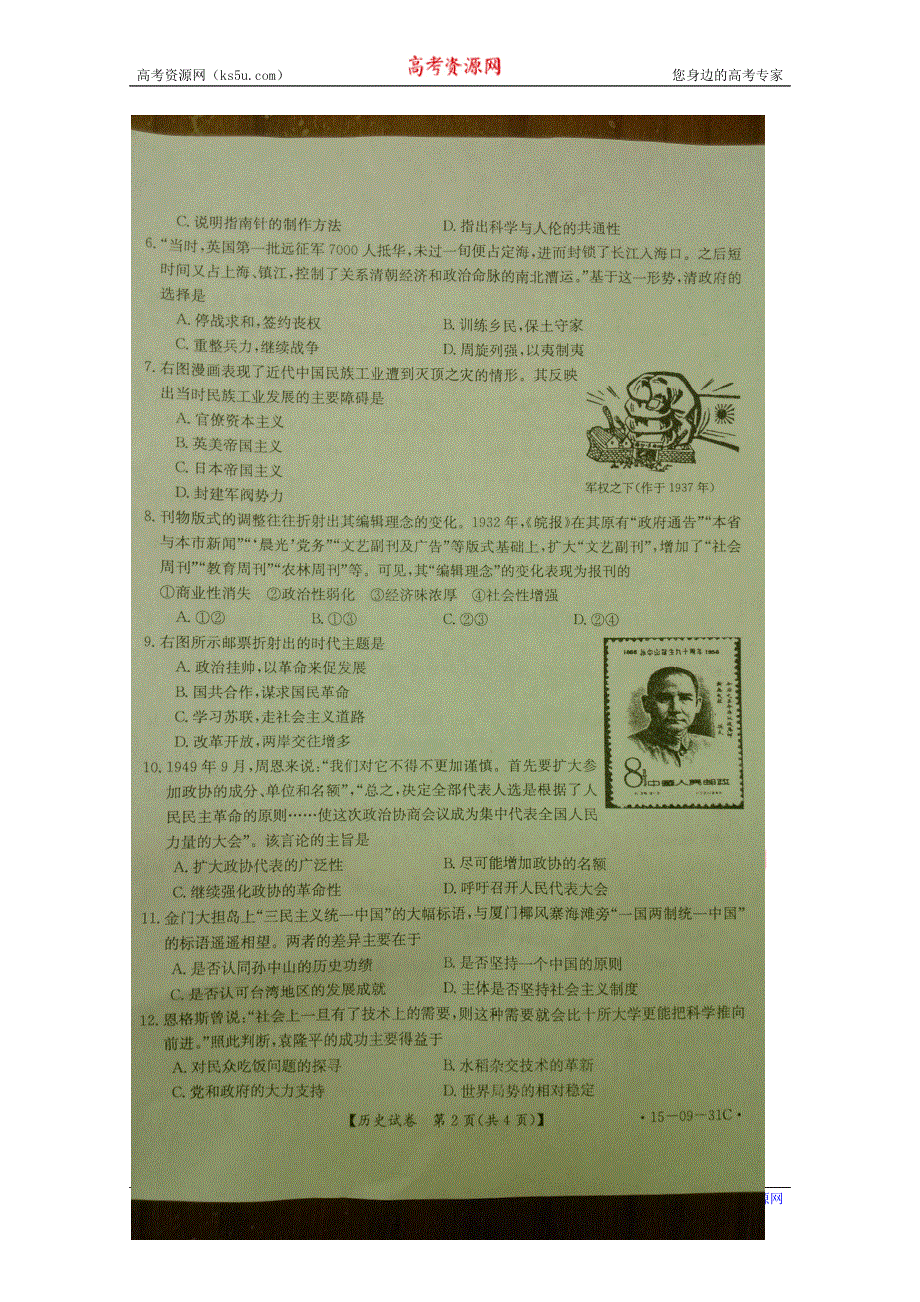 高考资源网（ks5u.com）
高考资源网
您身边的高考专家
C. 说明指南针的制作方法 D. 指出科学与人伦的共通性
6. “当时,英国第一批远征军7000人抵华,未过一旬便占定海,进而封锁了长江入海口。之后短
时间又占上海、镇江,控制了关系清朝经济和政治命脉的南北漕运。”基于这一形势,清政府的
选择是
A. 停战求和,签约丧权 B. 训练乡民,保土守家
C. 重整兵力,继续战争 D. 周旋列强,以夷制夷
7. 右图漫画表现了近代中国民族工业遭到灭顶之灾的情形。其反映
出当时民族工业发展的主要障碍是
A. 官僚资本主义
B. 英美帝国主义
C. 日本帝国主义
D. 封建军阀势力
军权之下(作于1937年)
8. 刊物版式的调整往往折射出其编辑理念的变化。1932年,《皖报》在其原有“政府通告”“本省
与本市新闻”“‘晨光’党务”“文艺副刊及广告”等版式基础上,扩大“文艺副刊”,增加了“社会
周刊”“教育周刊”“农林周刊”等。可见,其“编辑理念”的变化表现为报刊的
①商业性消失 ②政治性弱化 ③经济味浓厚 ④社会性增强
A. ①② B. ①③ C. ②③ D. ②④
9. 右图所示邮票折射出的时代主题是
A. 政治挂帅,以革命来促发展
B. 国共合作,谋求国民革命
C. 学习苏联,走社会主义道路
D. 改革开放,两岸交往增多
1866 孙中山诞生九十周年 1956
8 中国人民邮政
10. 1949年9月,周恩来说:“我们对它不得不更加谨慎。首先要扩大参
加政协的成分、单位和名额”,“总之,决定全部代表人选是根据了人
民民主革命的原则……使这次政治协商会议成为集中代表全国人民
力量的大会”。该言论的主旨是
A. 扩大政协代表的广泛性 B. 尽可能增加政协的名额
C. 继续强化政协的革命性 D. 呼吁召开人民代表大会
11. 金门大担岛上“三民主义统一中国”的大幅标语,与厦门椰风寨海滩旁“一国两制统一中国”
的标语遥遥相望。两者的差异主要在于
A. 是否认同孙中山的历史功绩 B. 是否坚持一个中国的原则
C. 是否认可台湾地区的发展成就 D. 主体是否坚持社会主义制度
12. 恩格斯曾说:“社会上一旦有了技术上的需要,则这种需要就会比十所大学更能把科学推向
前进。”照此判断,袁隆平的成功主要得益于
A. 对民众吃饭问题的探寻 B. 水稻杂交技术的革新
C. 党和政府的大力支持 D. 世界局势的相对稳定
【历史试卷 第2页(共4页)】 ·15－09－31C·
源网